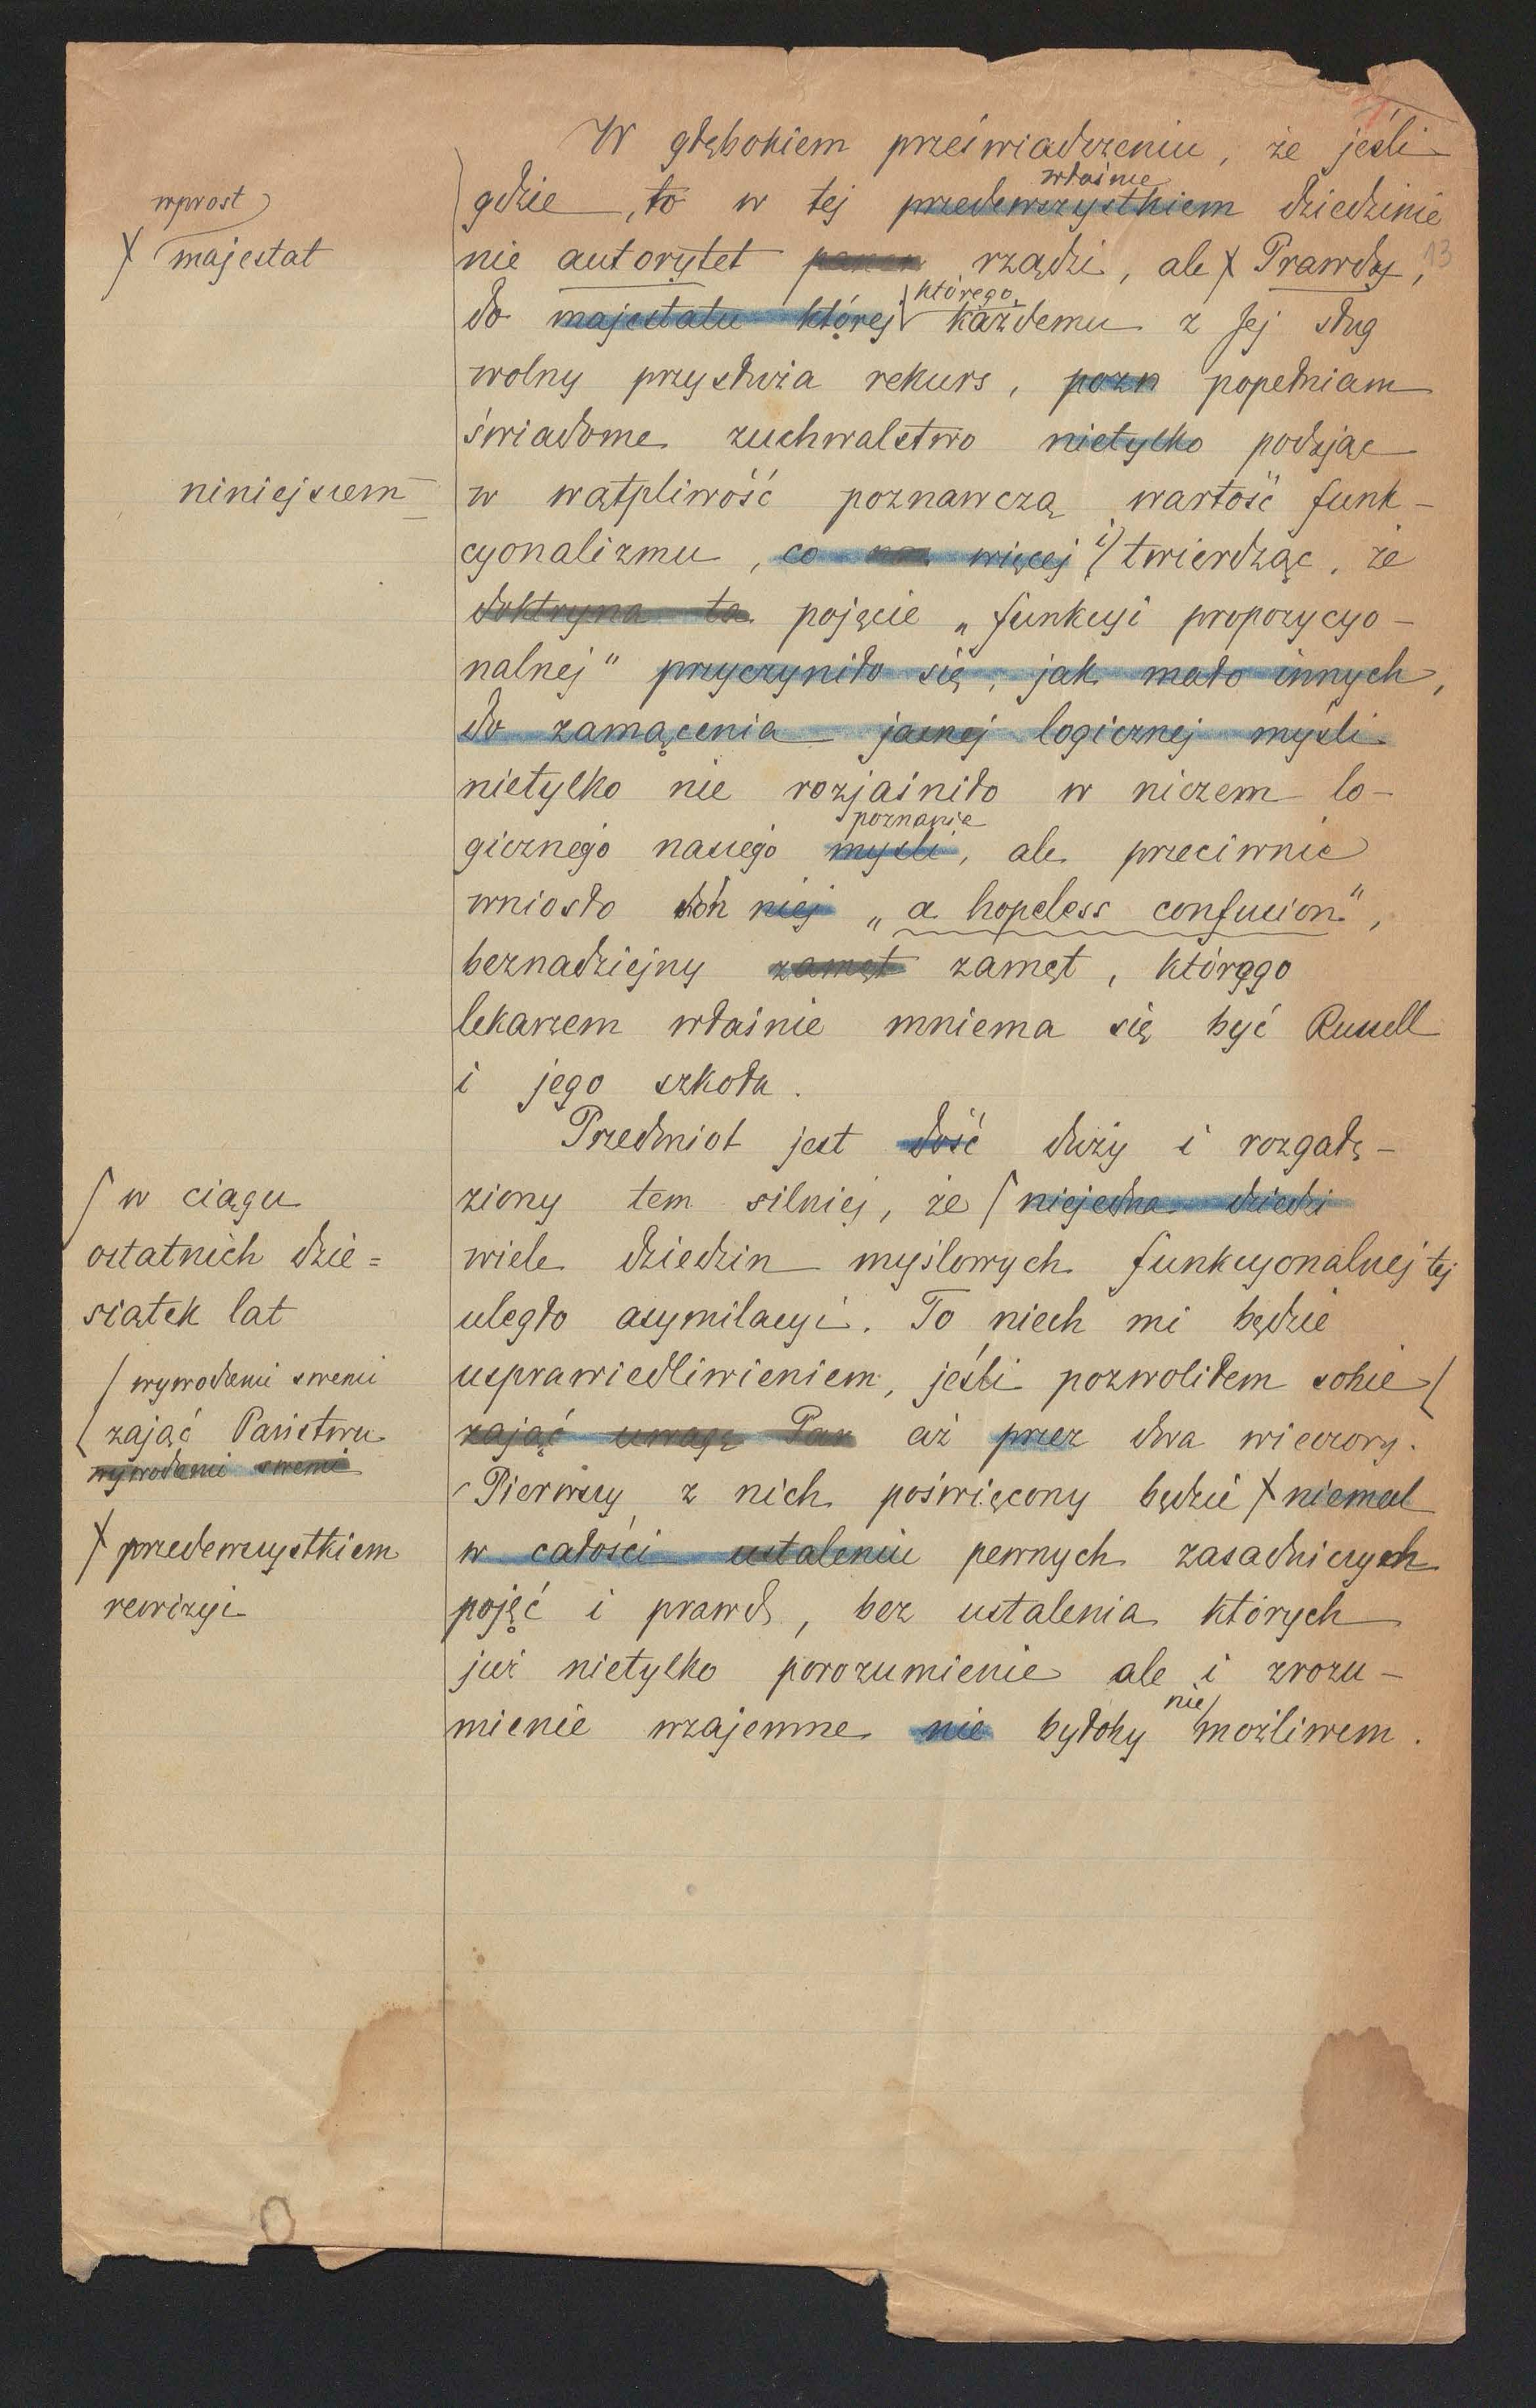 W głębokiem przeświadczeniu, że jeśli
właśnie
gdzie, to w tej przedewszystkiem dziedzinie
nie autorytet rządzi, ale X Prawdy,
13
którego
do majestatu której każdemu z Jej sług
wolny przysłuża rekurs, pozn popełniam
świadome zuchwalstwo nietylko podając
w wątpliwość poznawczą wartość funk-
cyonalizmu, co więcej i twierdząc, że
doktryna ta pojęcie „funkcyi propozycyo-
nalnej" przyczyniło się, jak mało innych,
do zamącenia jasnej logicznej myśli
nietylko nie rozjaśniło w niczem lo-
poznania
gicznego naszego myśli, ale przeciwnie
wniosło doń niej „a hopeless confusion",
beznadziejny zamęt zamęt, którego
lekarzem właśnie mniema się być Russell
i jego szkoła.
Przedmiot jest dość duży i rozgałę-
ziony tem silniej, że niejedna dziedzi
wiele dziedzin myślowych funkcyonalnej tej
uległo asymilacyi. To niech mi będzie
usprawiedliwieniem, jeśli pozwoliłem sobie
zająć uwagę Pań aż przez dwa wieczory.
Pierwszy z nich poświęcony będzie X niemal
w całości ustaleniu pewnych zasadniczych
pojęć i prawd, bez ustalenia których
już nietylko porozumienie ale i zrozu-
nie
mienie wzajemne nie byłoby możliwem.
wprost
X majestat
niniejszem
w ciągu
ostatnich dzie=
siątek lat
wywodami swemi
zająć Państwu
wywodami swemi
X przedewszystkiem
rewizyi